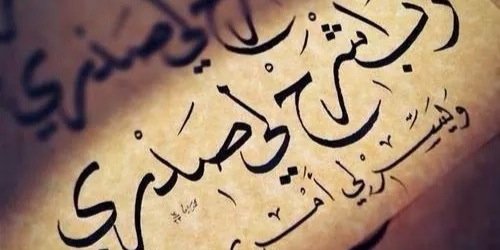 لي صدري
رب اشرح لي صدري
ويسر لي أمري